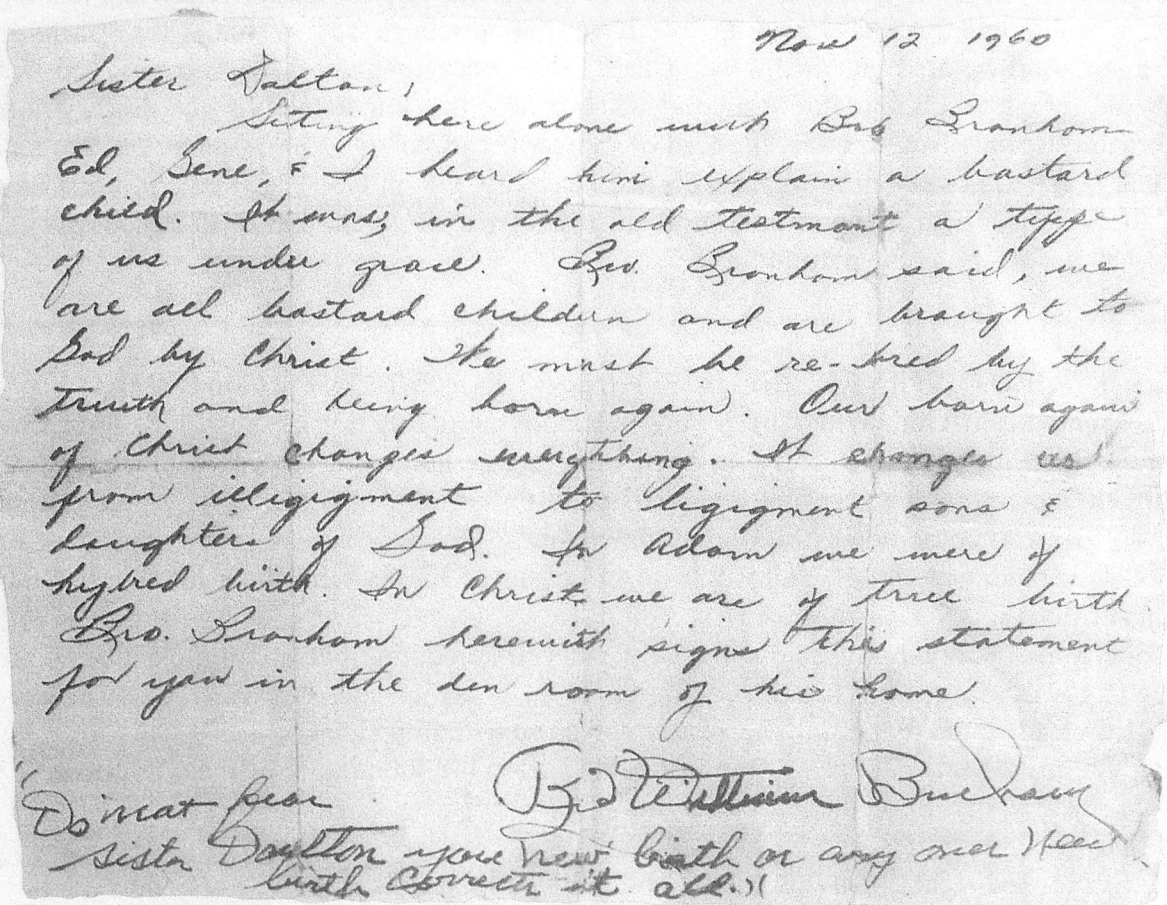 Nov 12 1960
Sister Dalton,
Siting here alone with Bro Branham
Ed, Gene, & I heard him explain a bastard
child. It was, in the old testmant a type
of us under grace. Bro. Branham said, we
are all bastard children and are brought to
God by Christ. We must be re-bred by the
truth and being born again. Our born again
of Christ changes everything. It changes us
from illigigment to ligigment sons &
daughters of God. In Adam we were of
hybred birth. In Christ we are of true birth.
Bro. Branham herewith signs this statement
for you in the den room of his home.
Bro William Branham
"Do not fear
sister Daulton your new birth or any ones New
birth Corrects it all."